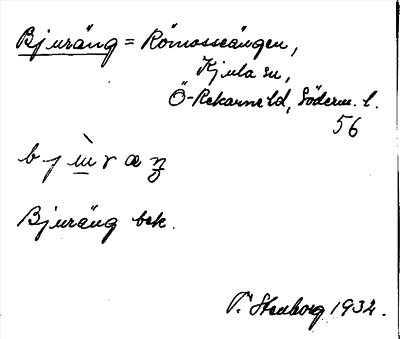 Bjuräng = Römosseängen,
Kjula sn,
Ö-Rekarne hd, Söderm. l.
56
Bjuräng bek.
Stenborg 1932.